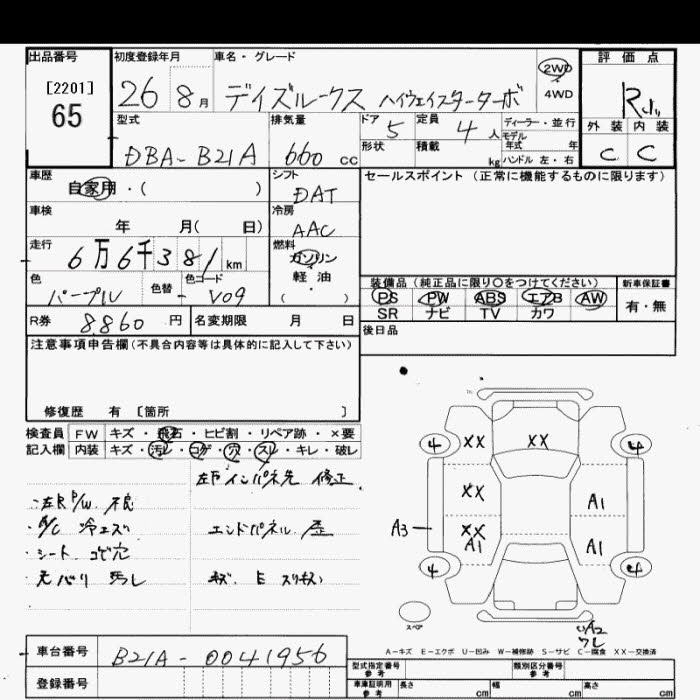 出品番号
[2201]
65
初度登録年月
26 8月
車名・グレード
デイズルークス ハイウェイスターターボ
2WD
4WD
評価点
R
外装 内装
C C
型式
DBA-B21A
排気量
660 cc
ドア 5
形状
定員 4人
積載 kg
ディーラー・並行
モデル
年式 年
ハンドル 左・右
車歴
自家用・( )
シフト
DAT
セールスポイント(正常に機能するものに限ります)
車検
年 月( 日)
冷房
AAC
走行
6万6千381km
燃料
ガソリン
軽・油
( ・ )
色
パープル
色替 -
色コード
V09
装備品(純正品に限り○をつけてください)
PS PW ABS エアB AW
SR ナビ TV カワ
新車保証書
有・無
R券 8.860円
名変期限 月 日
後日品
注意事項申告欄(不具合内容等は具体的に記入して下さい)
修復歴 有 [箇所 ]
検査員 FW キズ・飛石・ヒビ割・リペア跡・×要
記入欄 内装 キズ・汚レ・コゲ・穴・スレ・キレ・破レ
インパネ先 修正
左R P/W 不良
A/C 冷エズ
エンドパネル 歪
シート コゲ穴
汚レ
4 XX XX 4
XX A1
A3 XX A1 A1
4 4
スペア
A2
ワレ
A-キズ E-エクボ U-凹み W-補修跡 S-サビ C-腐食 XX-交換済
車台番号
B21A-0041956
登録番号
型式指定番号
参考
類別区分番号
参考
車庫証明用
参考
長さ cm 幅 cm 高さ cm